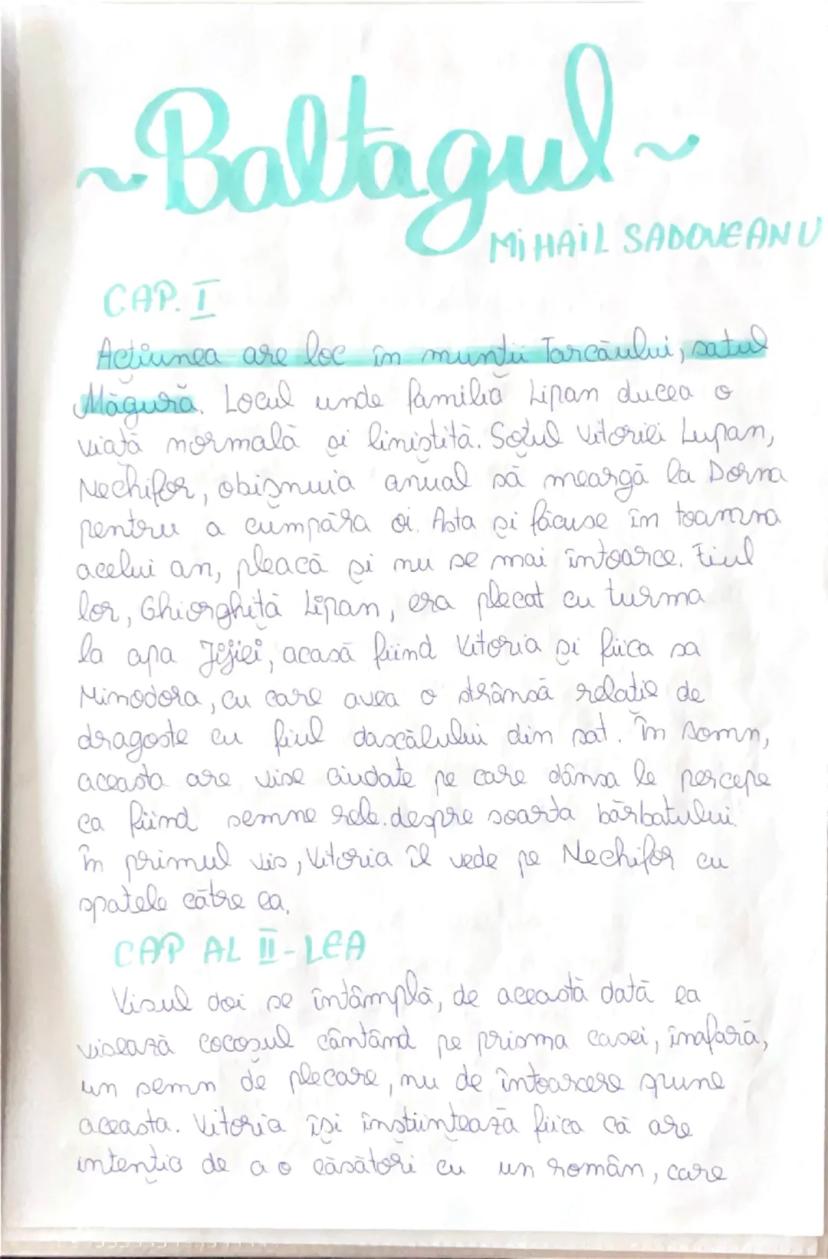 ~Baltagul~
MiHAiL SADOVEANU
CAP. I
Acțiunea are loc în munții Tarcăului, satul
Măgură. Locul unde familia Lipan ducea o
viață normală și liniștită. Soțul Vitoriei Lupan,
Nechifor, obișnuia anual să meargă la Dorna
pentru a cumpăra oi. Asta și făcuse în toamna
acelui an, pleacă și nu se mai întoarce. Fiul
lor, Ghiorghiță Lipan, era plecat cu turma
la apa Jijiei, acasă fiind Vitoria și fiica sa
Minodora, cu care avea o strânsă relație de
dragoste cu fiul dascălului din sat. În somn,
aceasta are vise ciudate pe care dânsa le percepe
ca fiind semne rele despre soarta bărbatului.
În primul vis, Vitoria îl vede pe Nechifor cu
spatele către ea.
CAP AL II-LEA
Visul doi se întâmplă, de această dată ea
visează cocoșul cântând pe prisma casei, înafară,
un semn de plecare, nu de întoarcere spune
aceasta. Vitoria își înștiințează fiica că are
intenția de a o căsători cu un român, care